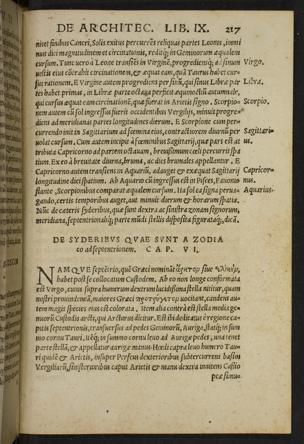 DE ARCHITEC. LIB. IX. 217
niret finibus Cancri, Solis exitus percurrẽs reliquas partes Leonis, immi
nuit diei magnitudinem et circinationis, redítq; in Geminorum æqualem
cursum. Tunc uero à Leone transiẽs in Virginẽ, progrediensq; ad sinum Virgo.
uestis eius cõtrahit circinationem, & æquat eam, quã Taurus habet cur
sus rationem. E Virgine autem progrediens per sinũ, qui sinus Libræ par Libra.
tes habet primas, in Libræ parte octaua perficit æquinoctiũ autumnale,
qui cursus æquat eam circinationẽ, quæ fuerat in Arietis signo. Scorpio Scorpio.
nem autem cũ sol ingressus fuerit occidentibus Vergiliis, minuit progre
diens ad meridianas partes longitudines dierum. E Scorpione cum per
currendo init in Sagittarium ad fœmina eius, contractiorem diurnũ per Sagittari⁹
uolat cursum. Cum autem incipit à fœminibus Sagittarij, quæ pars est at
tributa Capricorno ad partem octauam, breuissimum cœli percurrit spa
tium. Ex eo à breuitate diurna, bruma, ac dies brumales appellantur. E
Capricorno autem transiens in Aquariũ, adauget & exæquat Sagittarij Capricor⁹
longitudine diei spatium. Ab Aquario cũ ingressus est in Pisces, Fauonio nus.
flante, Scorpionibus comparat æqualem cursum. Ita sol ea signa perua⸗ Aquarius.
gando, certis temporibus auget, aut minuit dierum & horarum spatia.
Nũc de cæteris syderibus, quæ sunt dextra ac sinistra zonam signorum,
meridiana, septentrionaliq; parte mũdi stellis disposita figurataq; dicã.
DE SYDERIBVS QVAE SVNT A ZODIA
co ad septentrionem. CAP. VI.
NAMQVE septẽtrio, quẽ Græci nominãt ἄρκτον siue ἑλίκην,
habet post se collocatum Custodem. Ab eo non longe conformata
est Virgo, cuius supra humerum dextrum lucidissima stella nititur, quam
nostri prouindemiã, maiores Græci προτρύγητον uocitant, candens au
tem magis species eius est colorata. Item alia contra est stella media ge⸗
nuorũ Custodis arcti, qui Arcturus dicitur. Est ibi dedicatus è regione ca
pitis septentrionis, transuersus ad pedes Geminorũ, Auriga, statq; in sum
mo cornu Tauri, itẽq; in summo cornu leuo ad Aurigæ pedes, una tenet
parte stellã, & appellatur aurigæ manus. Hœdi capra leuo humero. Tau
ri quidẽ & Arietis, insuper Perseus dexterioribus subtercurrens basim
Vergiliarũ, sinisterioribus caput Arietis & manu dextra innitens Cassio
peæ simu⸗